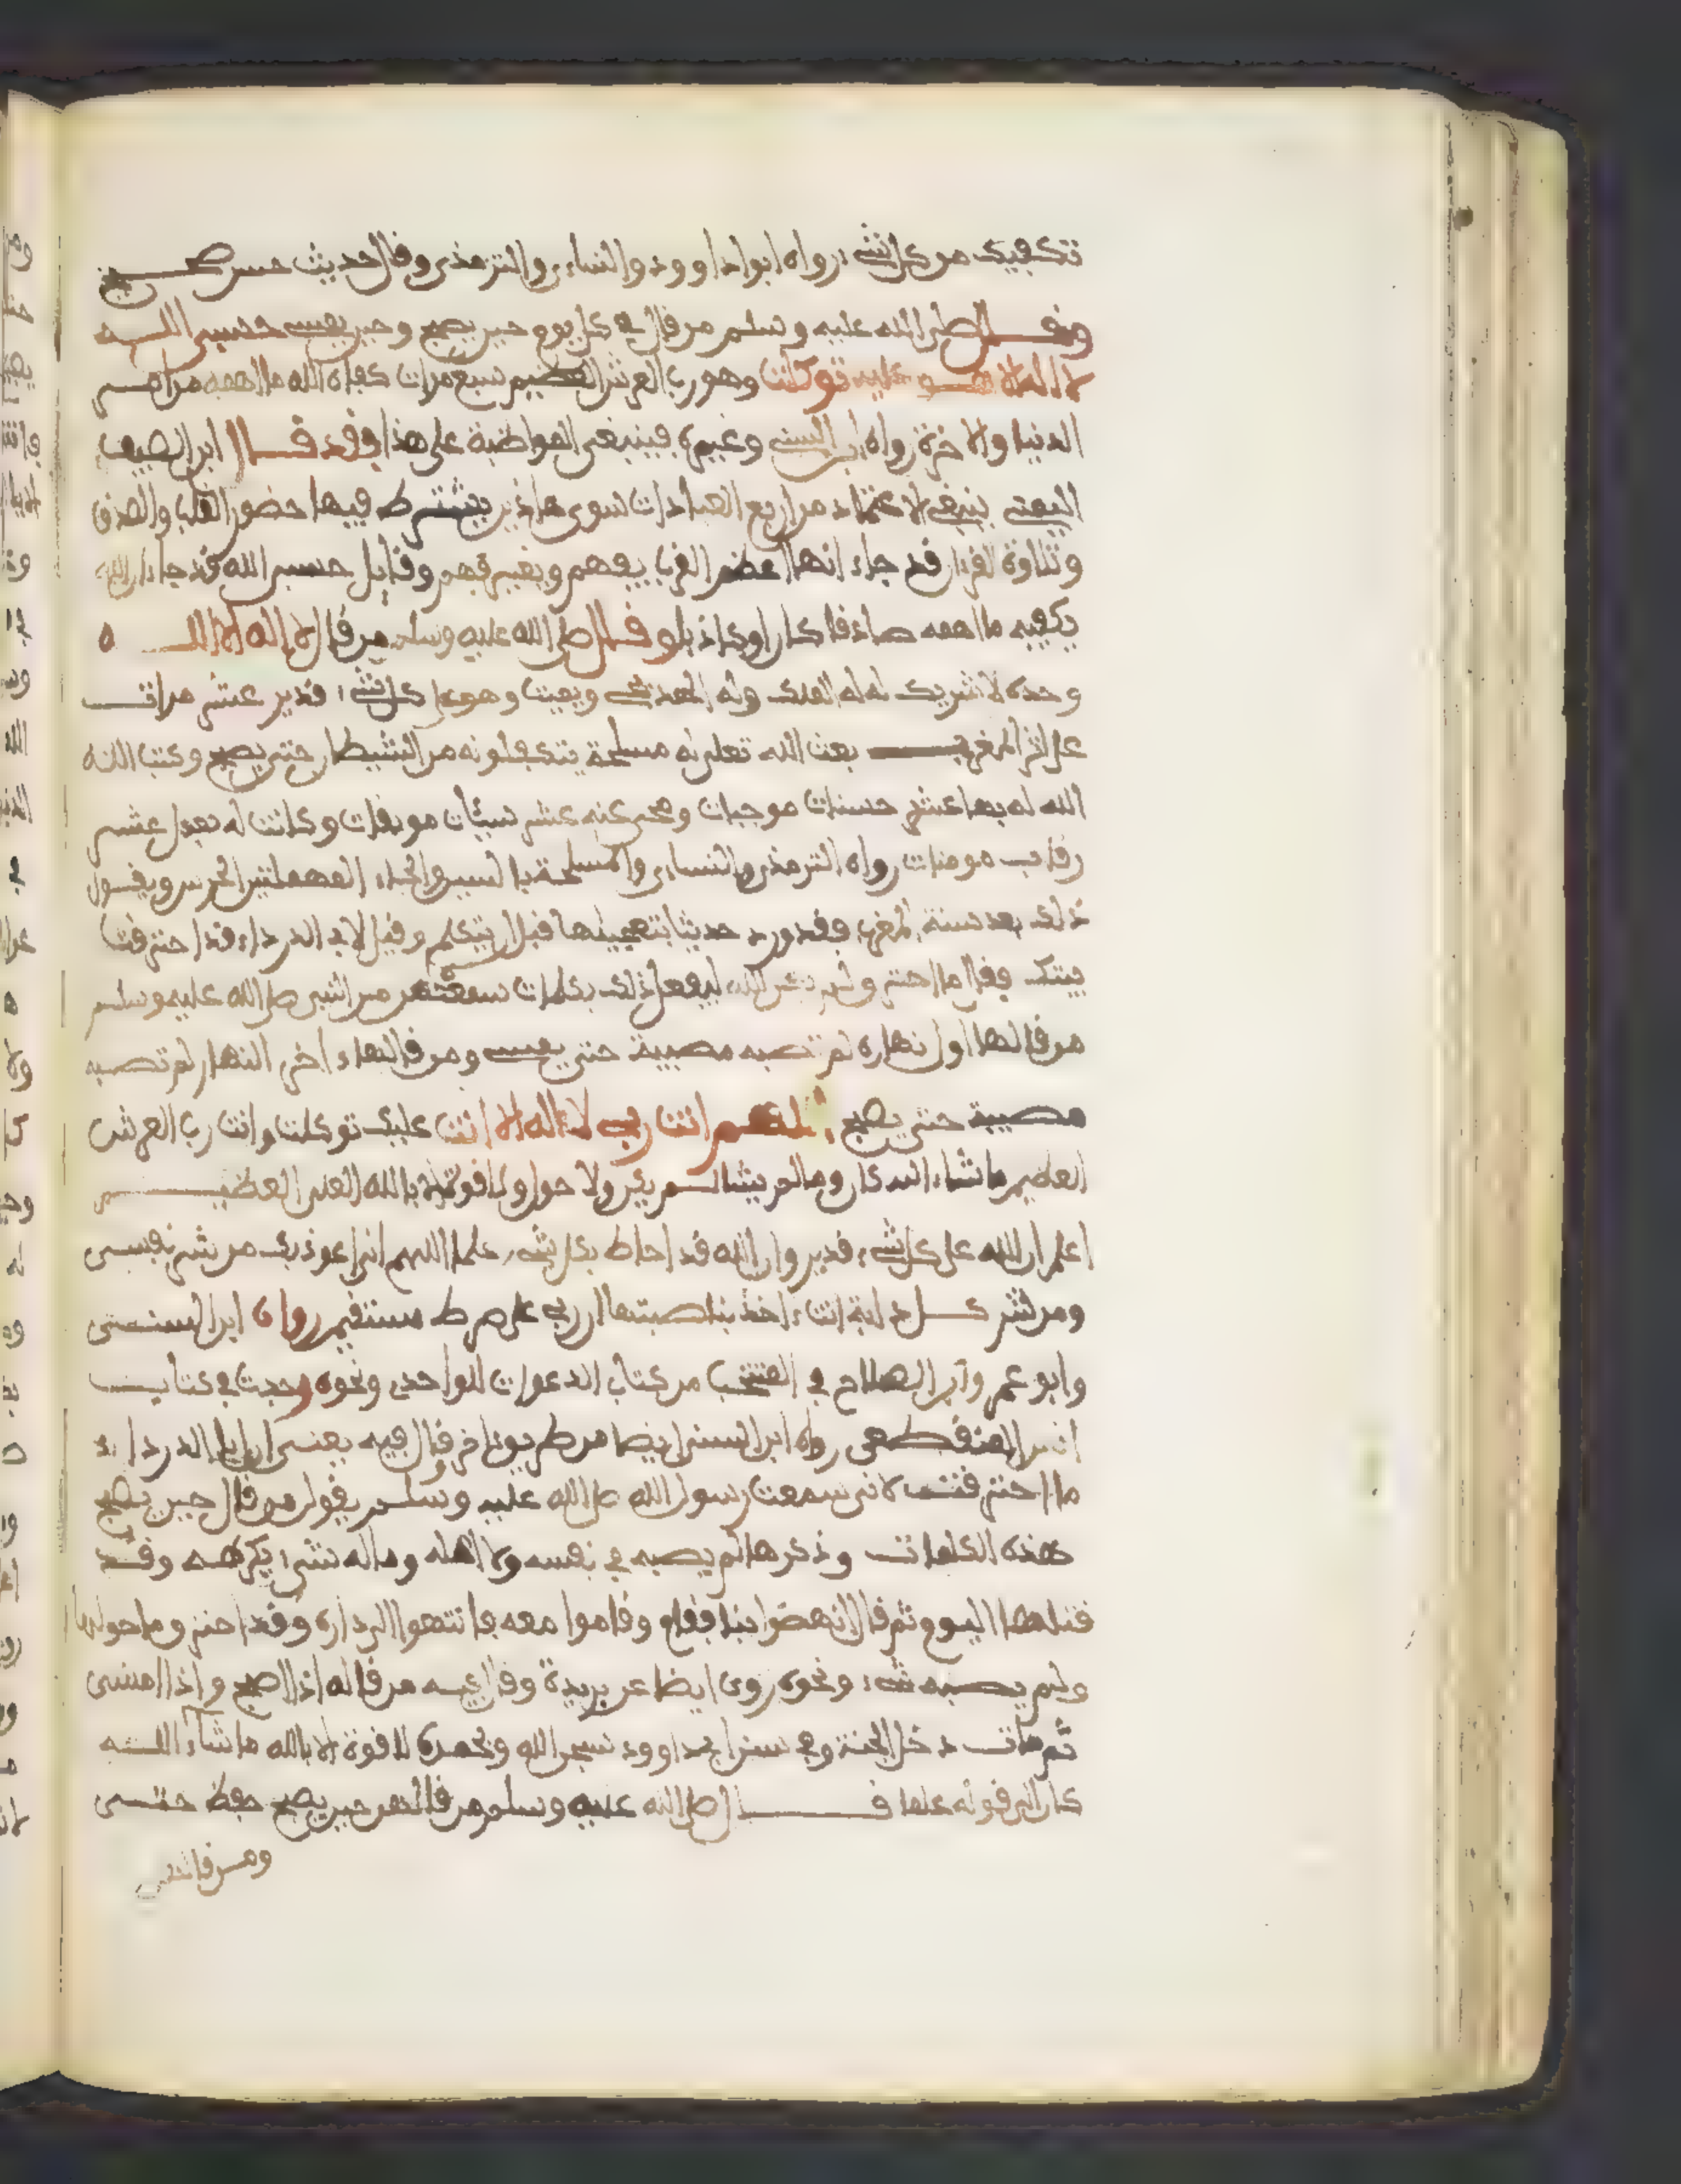 تكفيك من كل شيء رواه ابو داوود والنساءي والترمذي وقال حديث حسن صحيح
وقال صلى الله عليه وسلم من قال في كل يوم حين يصبح وحين يمسي حسبي الله
لا اله الا هو عليه توكلت وهو رب العرش العظيم سبع مرات كفاه الله ما اهمه من امر
الدنيا والاخرة رواه ابن السني وغيره فينبغي المواظبة على هذا فقد قال ابن الصيف
اليمني ينبغي الاعتماد من اربع العبادات سوى هاذين يشترط فيها حضور القلب والصدق
وتلاوة القرءان قد جاء انها اعظم القرب بفهم وبغير فهم وقايل حسبي الله قد جاء ان الله
يكفيه ما اهمه صادقا كان او كاذبا وقال صلى الله عليه وسلم من قال لا اله الا الله
وحده لا شريك له له الملك وله الحمد يحي ويميت وهو على كل شيء قدير عشر مرات
على اثر المغرب بعث الله تعلى له مسلحة يتكفلونه من الشيطان حتى يصبح وكتب الله
الله له بها عشر حسنات موجبات ومحى عنه عشر سيئات موبقات وكانت له بعدل عشر
رقاب مومنات رواه الترمذي والنساءي والمسلحة بالسين والحاء المهملتين الحرس ويقول
ذلك بعد سنة المغرب فقد ورد حديثا بتعجيلها قبل ان يتكلم وقيل لابي الدرداء قد احترقت
بيتك فقال ما احترق ولم يكن الله ليفعل ذلك بكلمات سمعتهن من النبي صلى الله عليه وسلم
من قالها اول نهاره لم تصبه مصيبة حتى يمسي ومن قالها ءاخر النهار لم تصبه
مصيبة حتى يصبح اللهم انت ربي لا اله الا انت عليك توكلت وانت رب العرش
العظيم ما شاء الله كان وما لم يشا لم يكن ولا حول ولا قوة الا بالله العلي العظيم
اعلم ان الله على كل شيء قدير وان الله قد احاط بكل شيء علما اللهم اني اعوذ بك من شر نفسي
ومن شر كل دابة انت ءاخذ بناصيتها ان ربي على صرط مستقيم رواه ابن السني
وابو عمر وابن الصلاح في المنتخب من كتاب الدعوات للواحدي ونحوه وجدت في كتاب
رواه ابن السني ايضا من طريق اخر قال فيه يعني ابا الدرداء
ما احترقت لاني سمعت رسول الله صلى الله عليه وسلم يقول من قال حين يصبح
هذه الكلمات وذكرها لم يصبه في نفسه ولا اهله وماله شيء يكرهه وقد
قلتها اليوم ثم قال انهضوا بنا فقام وقاموا معه فانتهوا الى داره وقد احترق وما حولها
ولم يصبه شيء ونحوه روى ايضا عن بريدة وقال فيه من قاله اذا اصبح واذا امسى
ثم مات دخل الجنة وفي سنن ابي داوود سبحن الله وبحمده لا قوة الا بالله ما شاء الله
كان الى قوله علما قال صلى الله عليه وسلم من قالهن حين يصبح حفظ حتى
ومن قالهن